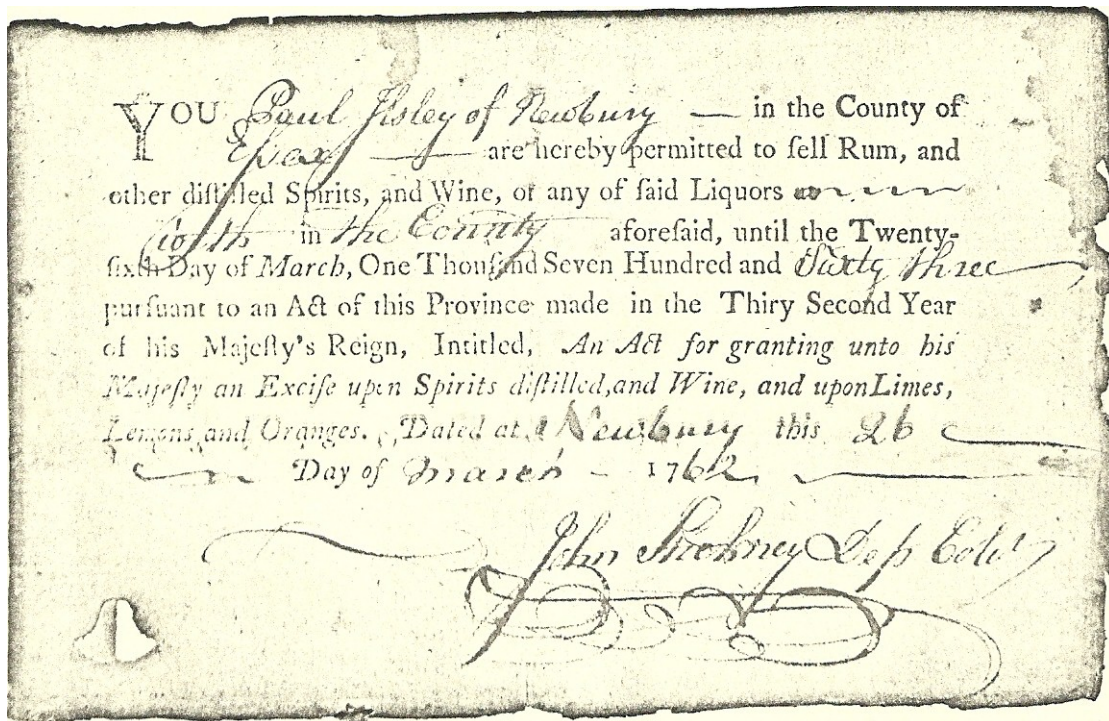 YOU Paul Ilsley of Newbury — in the County of
Eſsex — are hereby permitted to ſell Rum, and
other diſtilled Spirits, and Wine, or any of ſaid Liquors
in the County aforeſaid, until the Twenty-
ſixth Day of March, One Thouſand Seven Hundred and Sixty three
purſuant to an Act of this Province made in the Thiry Second Year
of his Majeſty's Reign, Intitled, An Act for granting unto his
Majeſty an Exciſe upon Spirits diſtilled, and Wine, and upon Limes,
Lemons and Oranges. Dated at Newbury this 26
Day of March — 1762
John Stickney Dep Colr